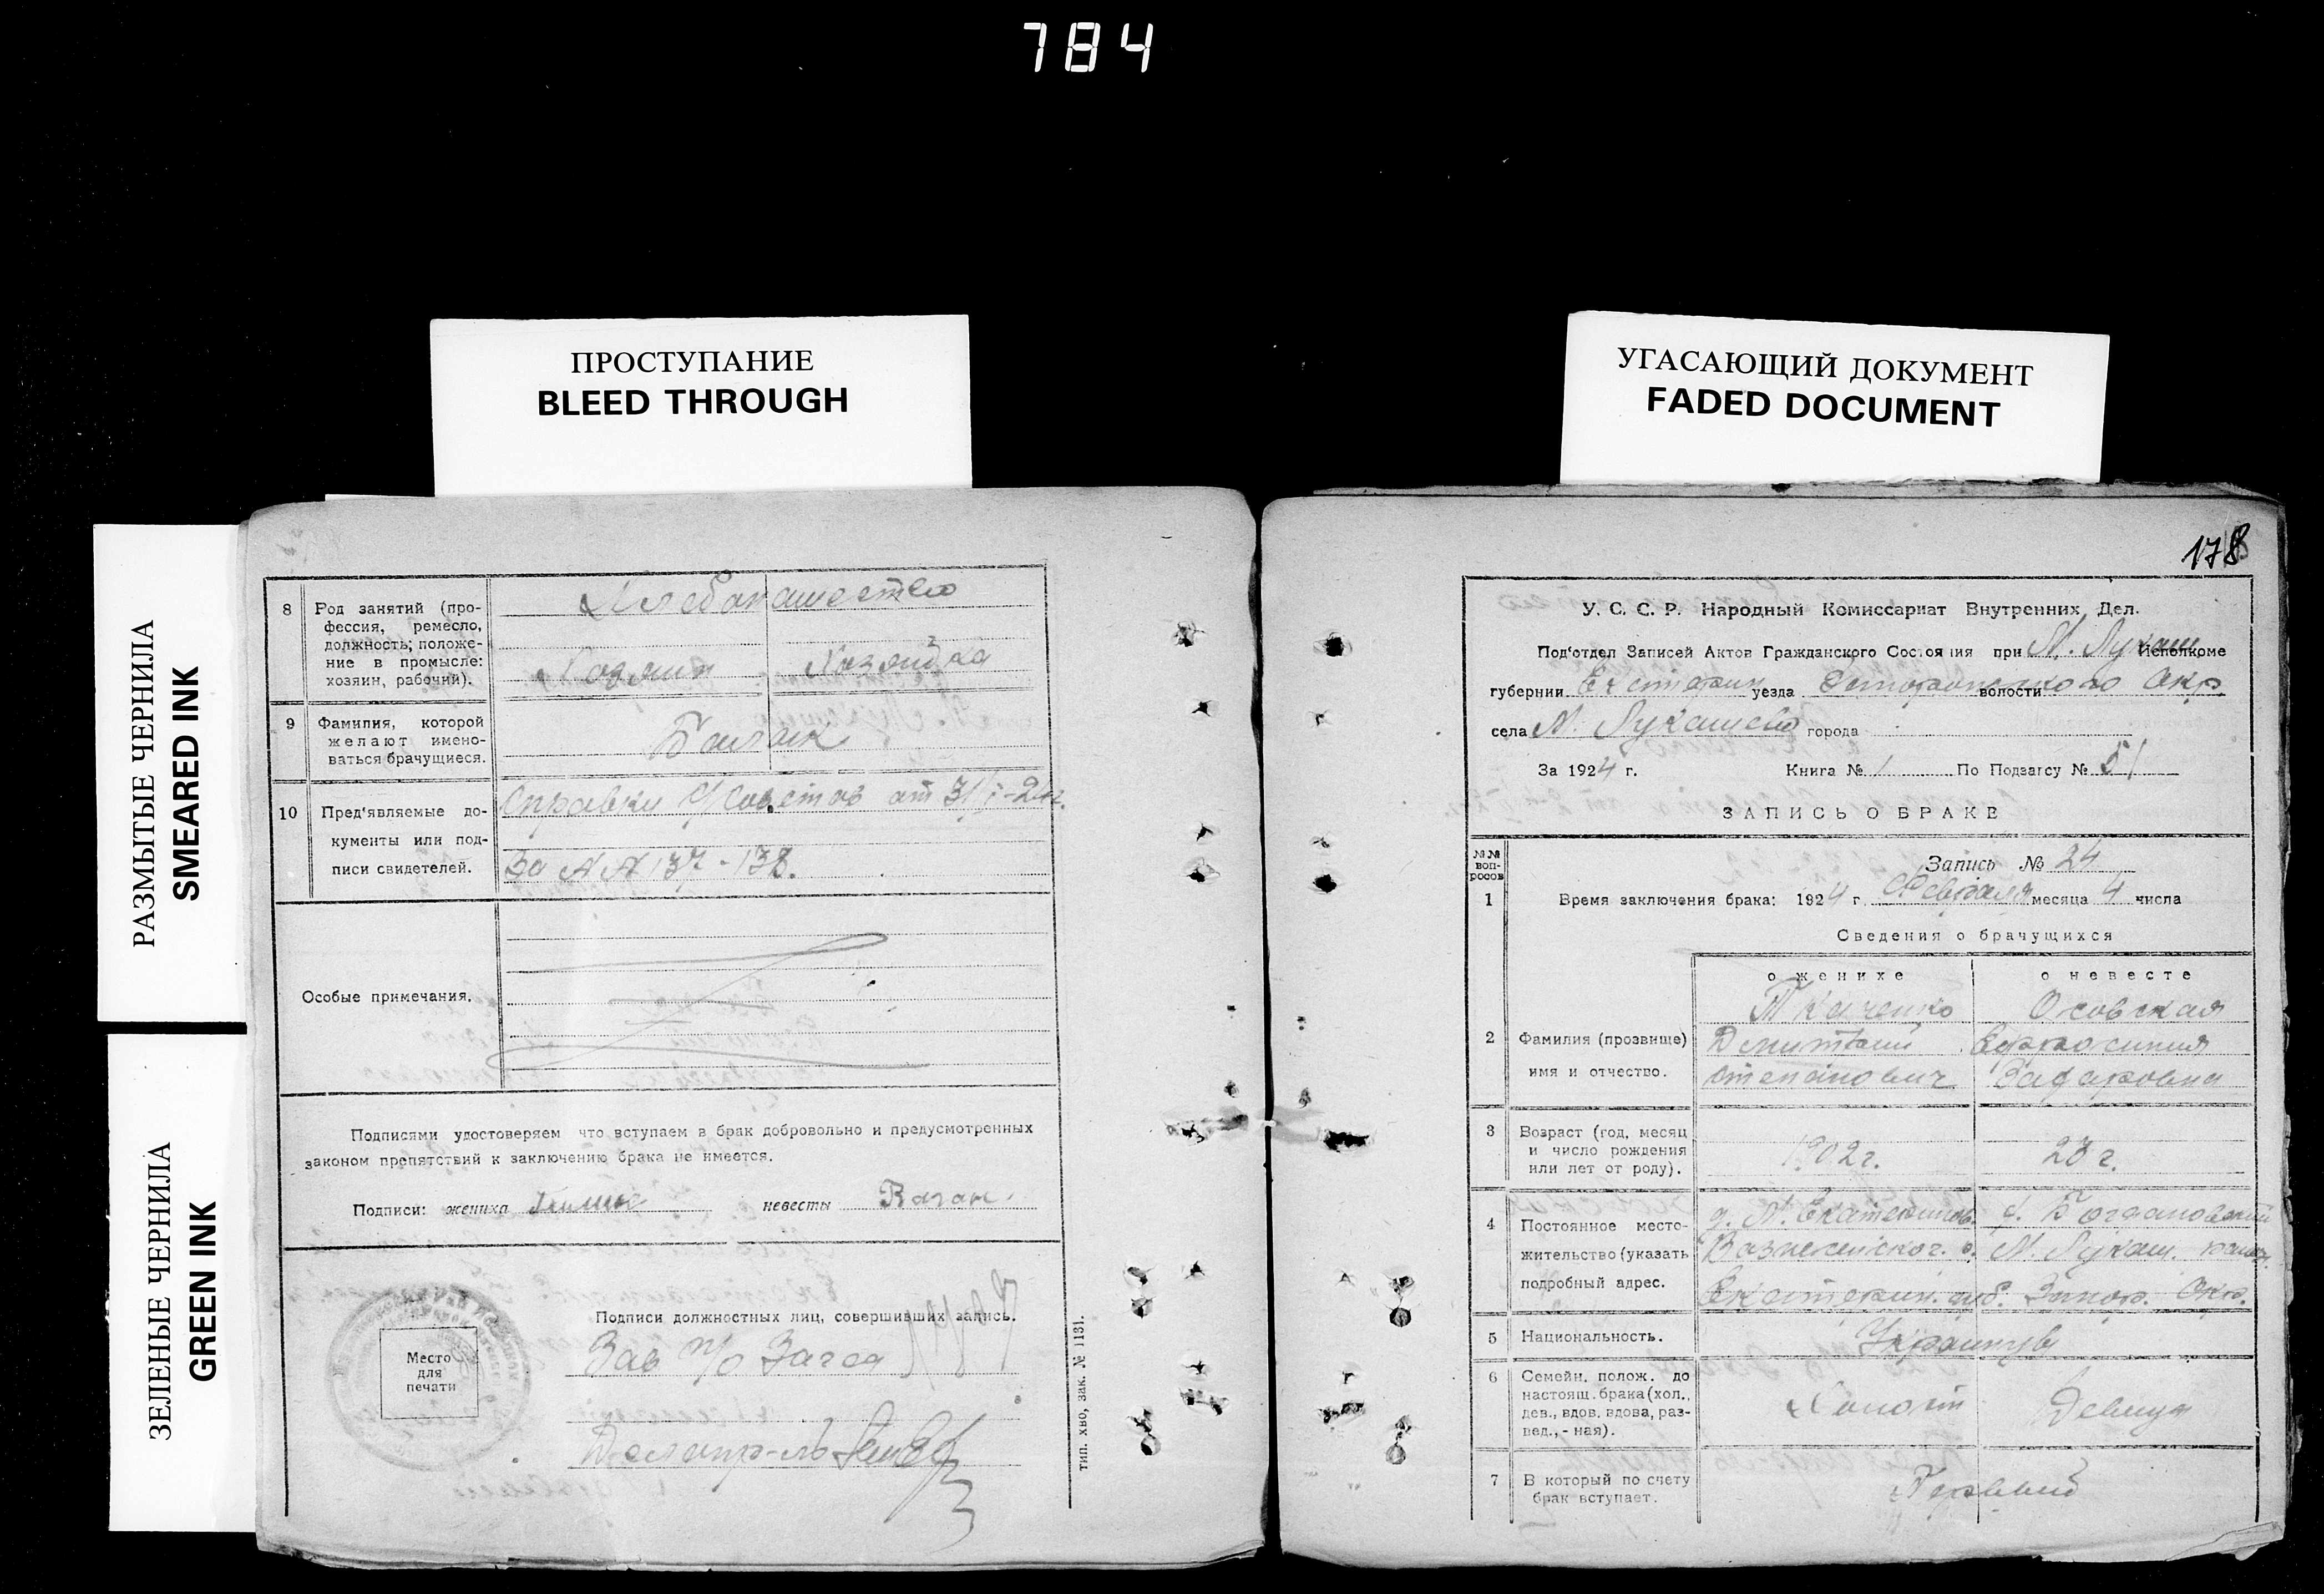 784
ПРОСТУПАНИЕ
BLEED THROUGH
УГАСАЮЩИЙ ДОКУМЕНТ
FADED DOCUMENT
РАЗМЫТЫЕ ЧЕРНИЛА
SMEARED INK
ЗЕЛЕНЫЕ ЧЕРНИЛА
GREEN INK
8 Род занятий (про-
фессия, ремесло,
должность; положе-
ние в промысле:
хозяин, рабочий).
Хлебопашество
Хозяин Хозяйка
9 Фамилия, которой
желают имено-
ваться брачущиеся.
10 Пред'являемые до-
кументы или под-
писи свидетелей.
Справки с/советов от 31/I-24г.
За № № 137-138.
Особые примечания.
Подписями удостоверяем что вступаем в брак добровольно и предусмотренных
законом препятствий к заключению брака не имеется.
Подписи: жениха невесты
Место
для
печати
Подписи должностных лиц, совершивших запись.
Зав п/о Загса
Делопр-ль
тип. хво, зак. № 1131.
178
У. С. С. Р. Народный Комиссариат Внутренних Дел.
Под'отдел Записей Актов Гражданского Состояния при М. Лукаш Исполкоме
губернии Екатерин уезда волости Окр
села М. Лукашево города
За 1924 г. Книга № 1 По Подзагсу № 51
ЗАПИСЬ О БРАКЕ
№№
воп-
росов
Запись № 24
1 Время заключения брака: 1924 г. Февраля месяца 4 числа
Сведения о брачущихся
о женихе о невесте
Ткаченко Осовская
2 Фамилия (прозвище)
имя и отчество.
Дмитрий Ефросиния
Степанович Захаровна
3 Возраст (год, месяц
и число рождения
или лет от роду).
1902г. 23 г.
4 Постоянное место-
жительство (указать
подробный адрес.
д. М. Екатеринов.
М. Лукаш.
Екатерин. губ. Запор. Окр.
5 Национальность.
Украинцы
6 Семейн. полож. до
настоящ. брака (хол.,
дев., вдов. вдова, раз-
вед.,- ная).
Холост Девица
7 В который по счету
брак вступает.
Первый